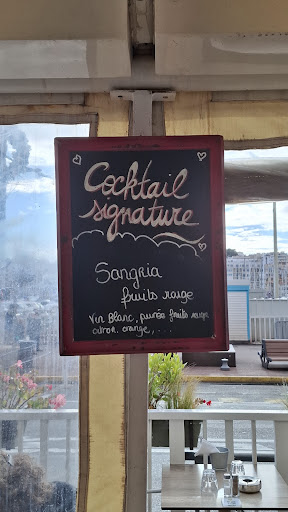 Cocktail
signature
Sangria
fruits rouge
Vin Blanc, purée fruits rouge
citron, orange, ...